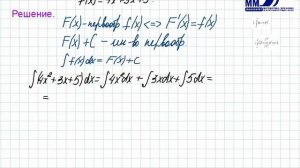 Решение.
F(x)-первообр f(x) <=> F'(x)=f(x)
F(x)+C - мн-во первообр
∫f(x)dx = F(x)+C
∫(4x²+3x+5)dx = ∫4x²dx + ∫3xdx + ∫5dx =
=